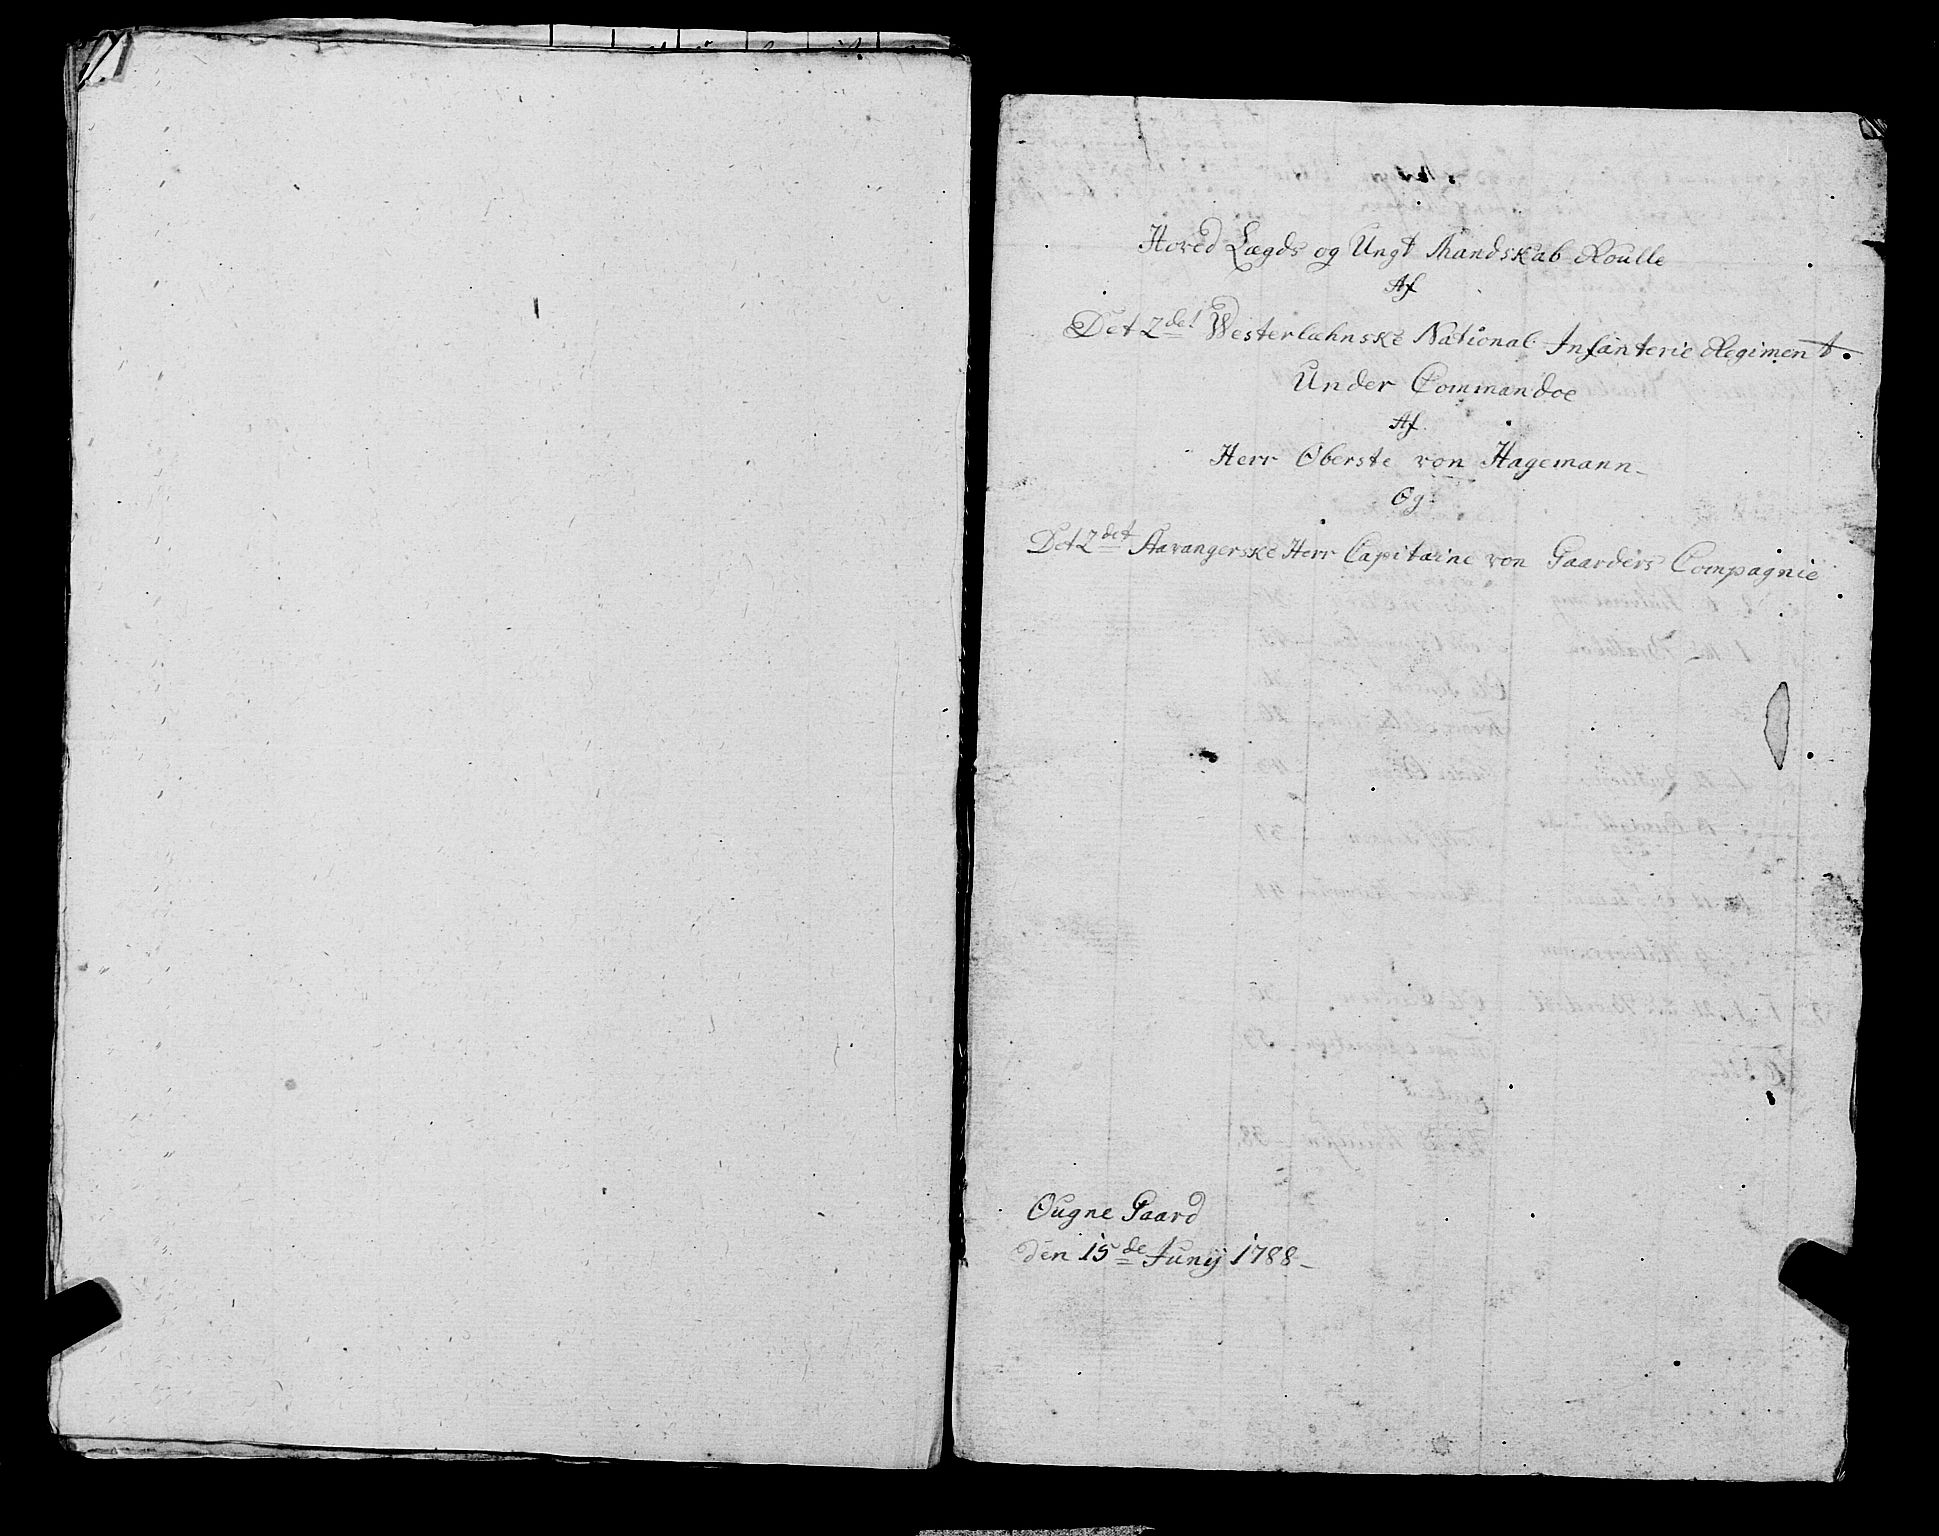 Hoved Lægds og Ungt Mandskab Roulle
Af
Det 2det Westerlehnske National Infanterie Regiment.
Under Commandoe
Af
Herr Oberste von Hagemann
Og
Det 2det Stavangerske Herr Capitaine von Gaarders Compagnie
Ougne Gaard
den 15de Junij 1788